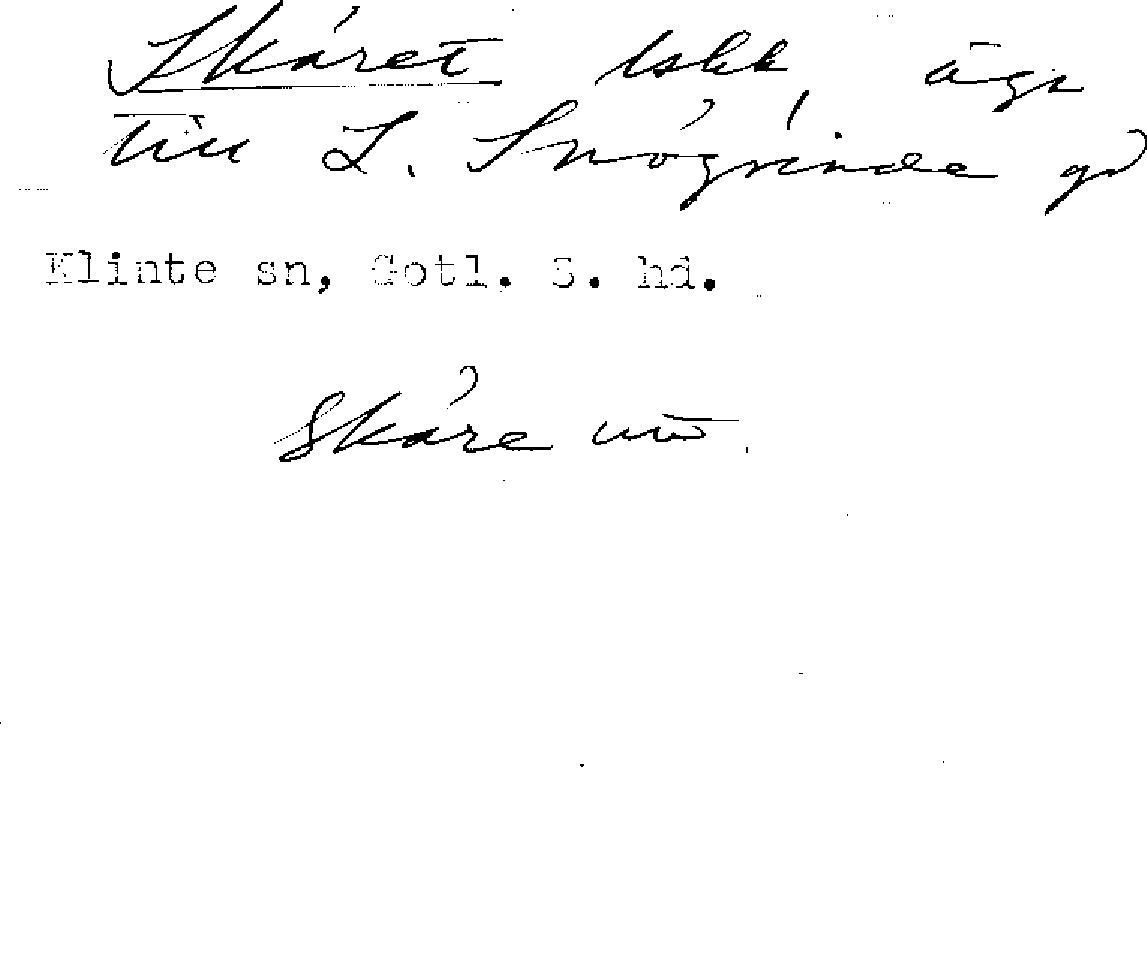 Skåret
till L. Snögrinde gd
Klinte sn, Gotl. S. hd.
Skåre